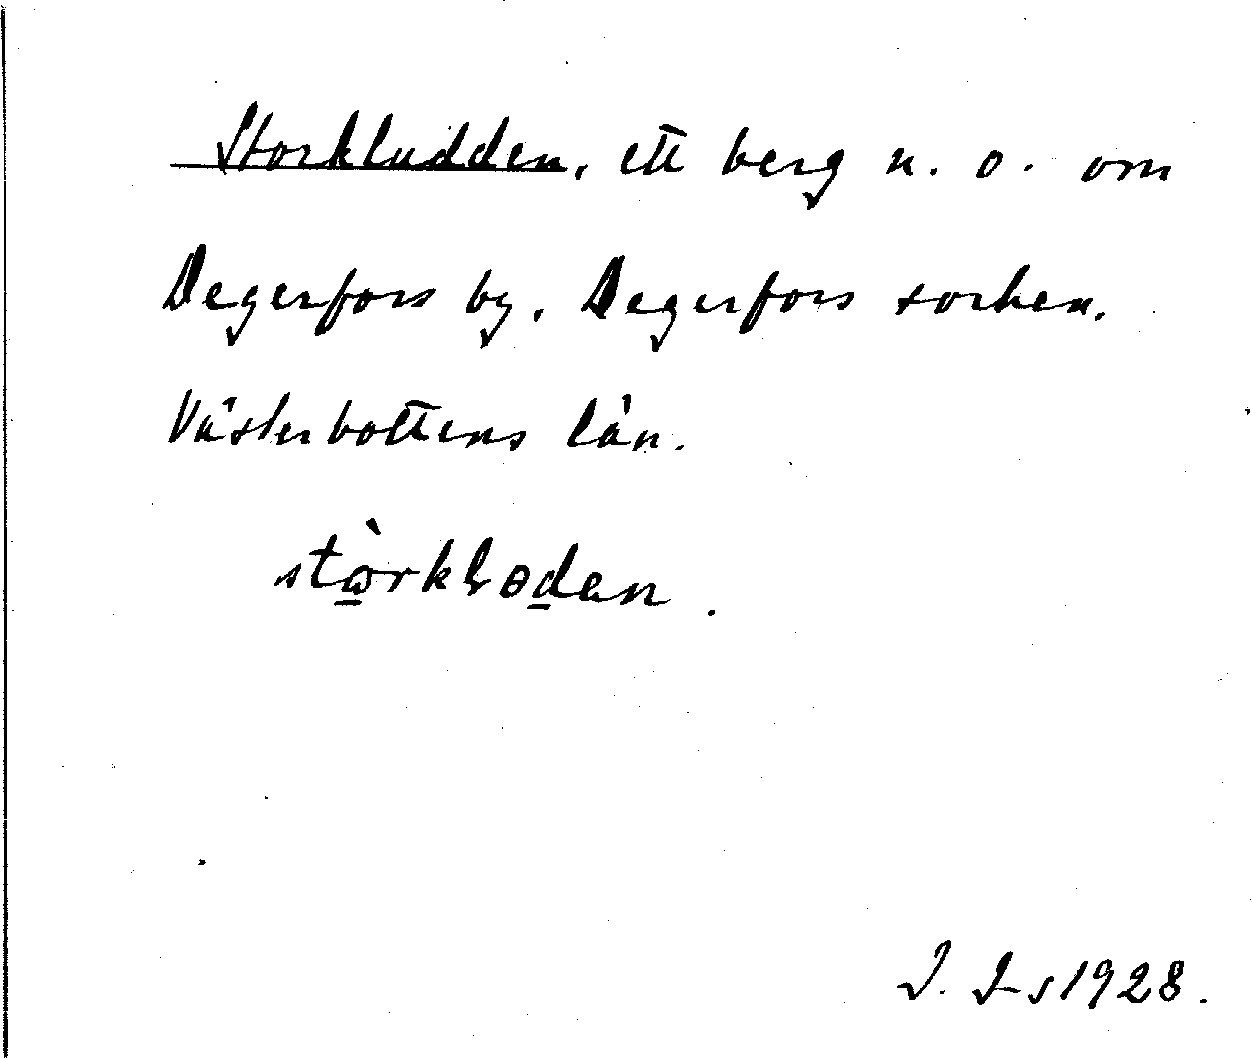 Storkludden, ett berg n. o. om
Degerfors by. Degerfors socken.
Västerbottens län.
stò̱rklɵḏen.
J. J-s 1928.